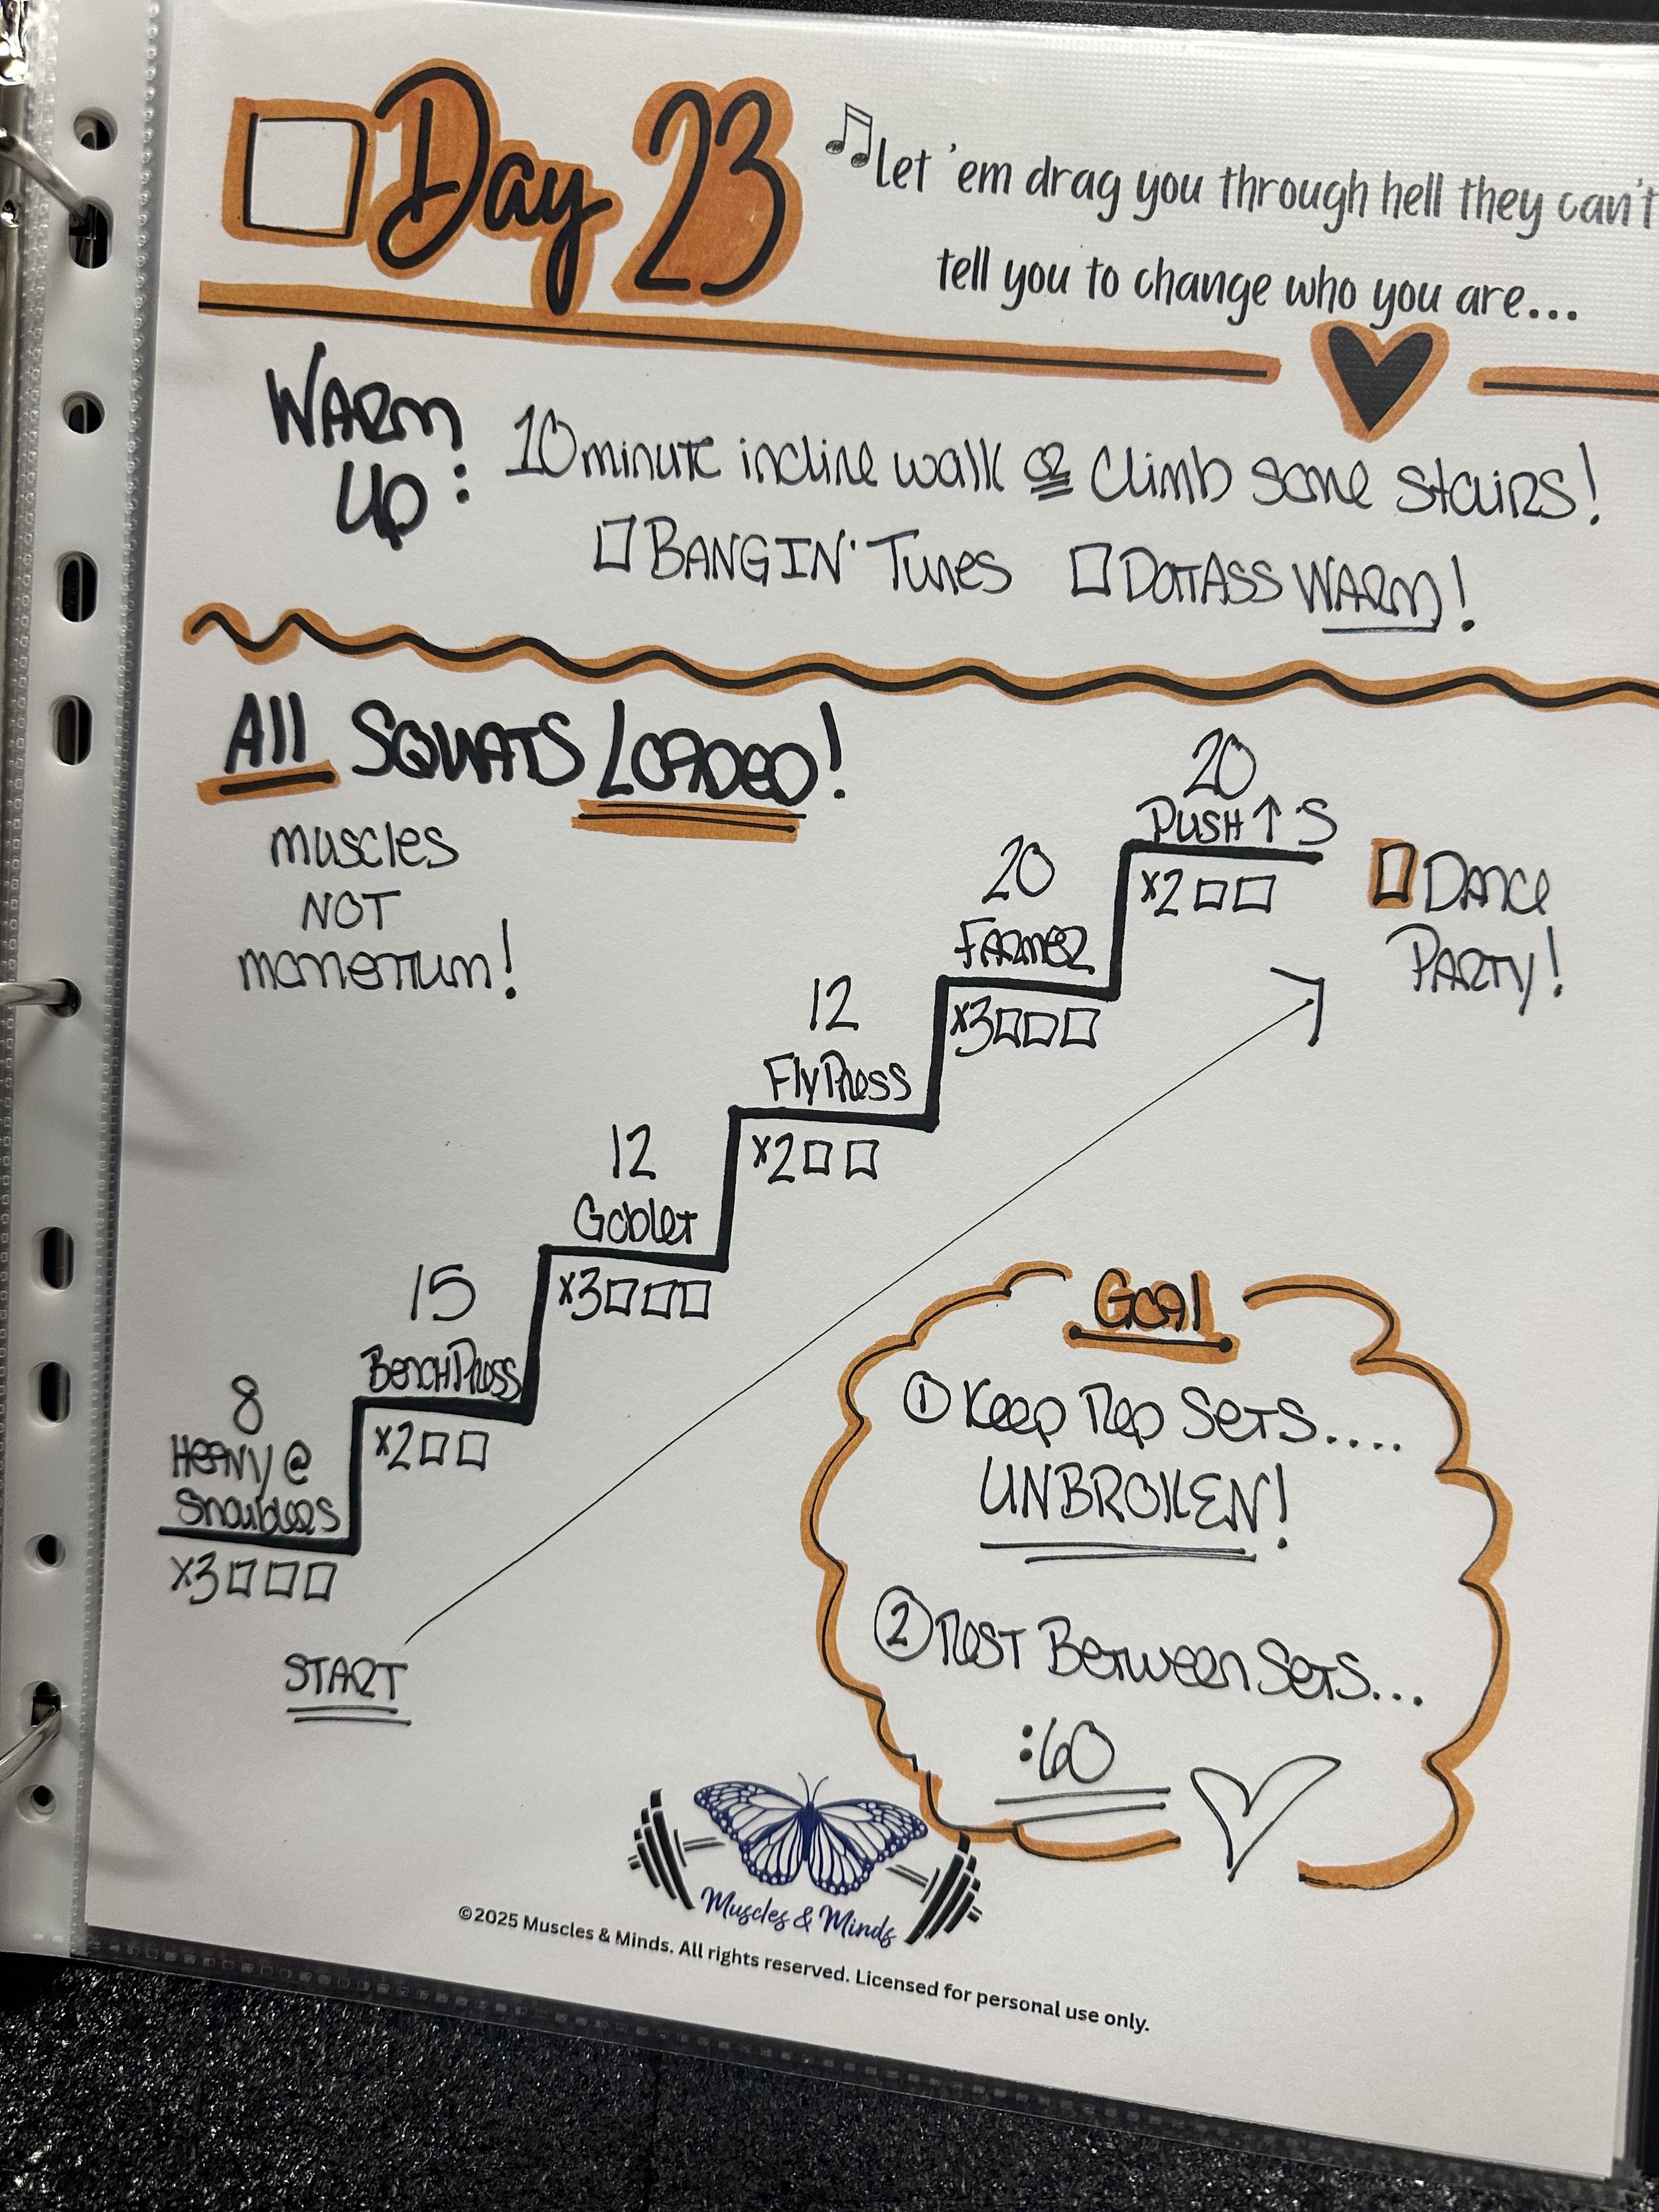 Day 23
Let 'em drag you through hell they can't
tell you to change who you are...
WARM
UP:
10 minute incline walk OR Climb some stairs!
BANGIN' Tunes
DATTASS WARM!
All SQUATS LOADED!
muscles
NOT
momentum!
20
PUSH↑'S
x2
DANCE
PARTY!
20
FARMER
x3
12
Fly Press
x2
12
Goblet
x3
15
BENCH PRESS
x2
8
HEAVY @
Shoulders
x3
START
GOAL
① Keep Rep SETS....
UNBROKEN!
② REST BETWEEN SETS...
:60
Muscles & Minds
©2025 Muscles & Minds. All rights reserved. Licensed for personal use only.